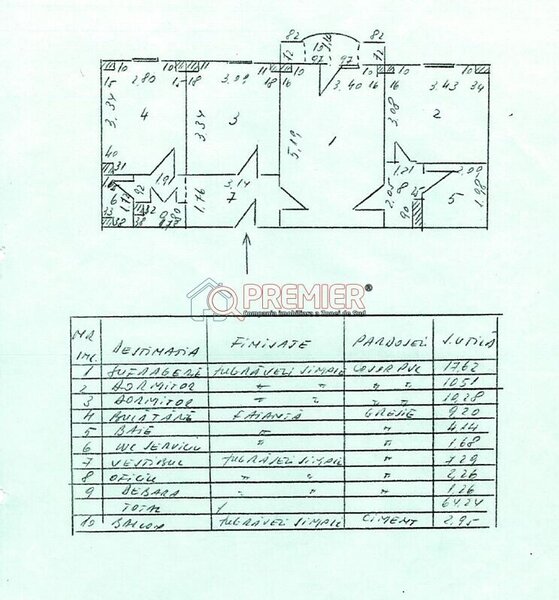 82 82
12 13 92 7,16 92 12
10 10 11 11 10 10 10
15 2,80 15 18 3,09 18 16 3,40 16 16 3,43 34
3,34 4 3,34 3 5,19 1 3,08 2
40
31 1,91 1,21 2,09
6 92 1,76 3,14 7 2,05 8 90 5 1,98
38 38 32
PREMIER®
Compania imobiliara a Zonei de Sud
NR INC. DESTINATIA FINISAJE PARDOSELI S.UTILĂ
1 SUFRAGERIE ZUGRĂVELI SIMPLE 17,62
2 DORMITOR " " " " 10,51
3 DORMITOR " " " " 10,28
4 BUCĂTĂRIE FAIANȚĂ GRESIE 9,20
5 BAIE " " 4,14
6 WC SERVICIU " " 1,68
7 VESTIBUL ZUGRĂVELI SIMPLE " 7,29
8 OFICIU " " " 2,26
9 DEBARA " " " 1,26
TOTAL 64,24
10 BALCON ZUGRĂVELI SIMPLE CIMENT 2,95